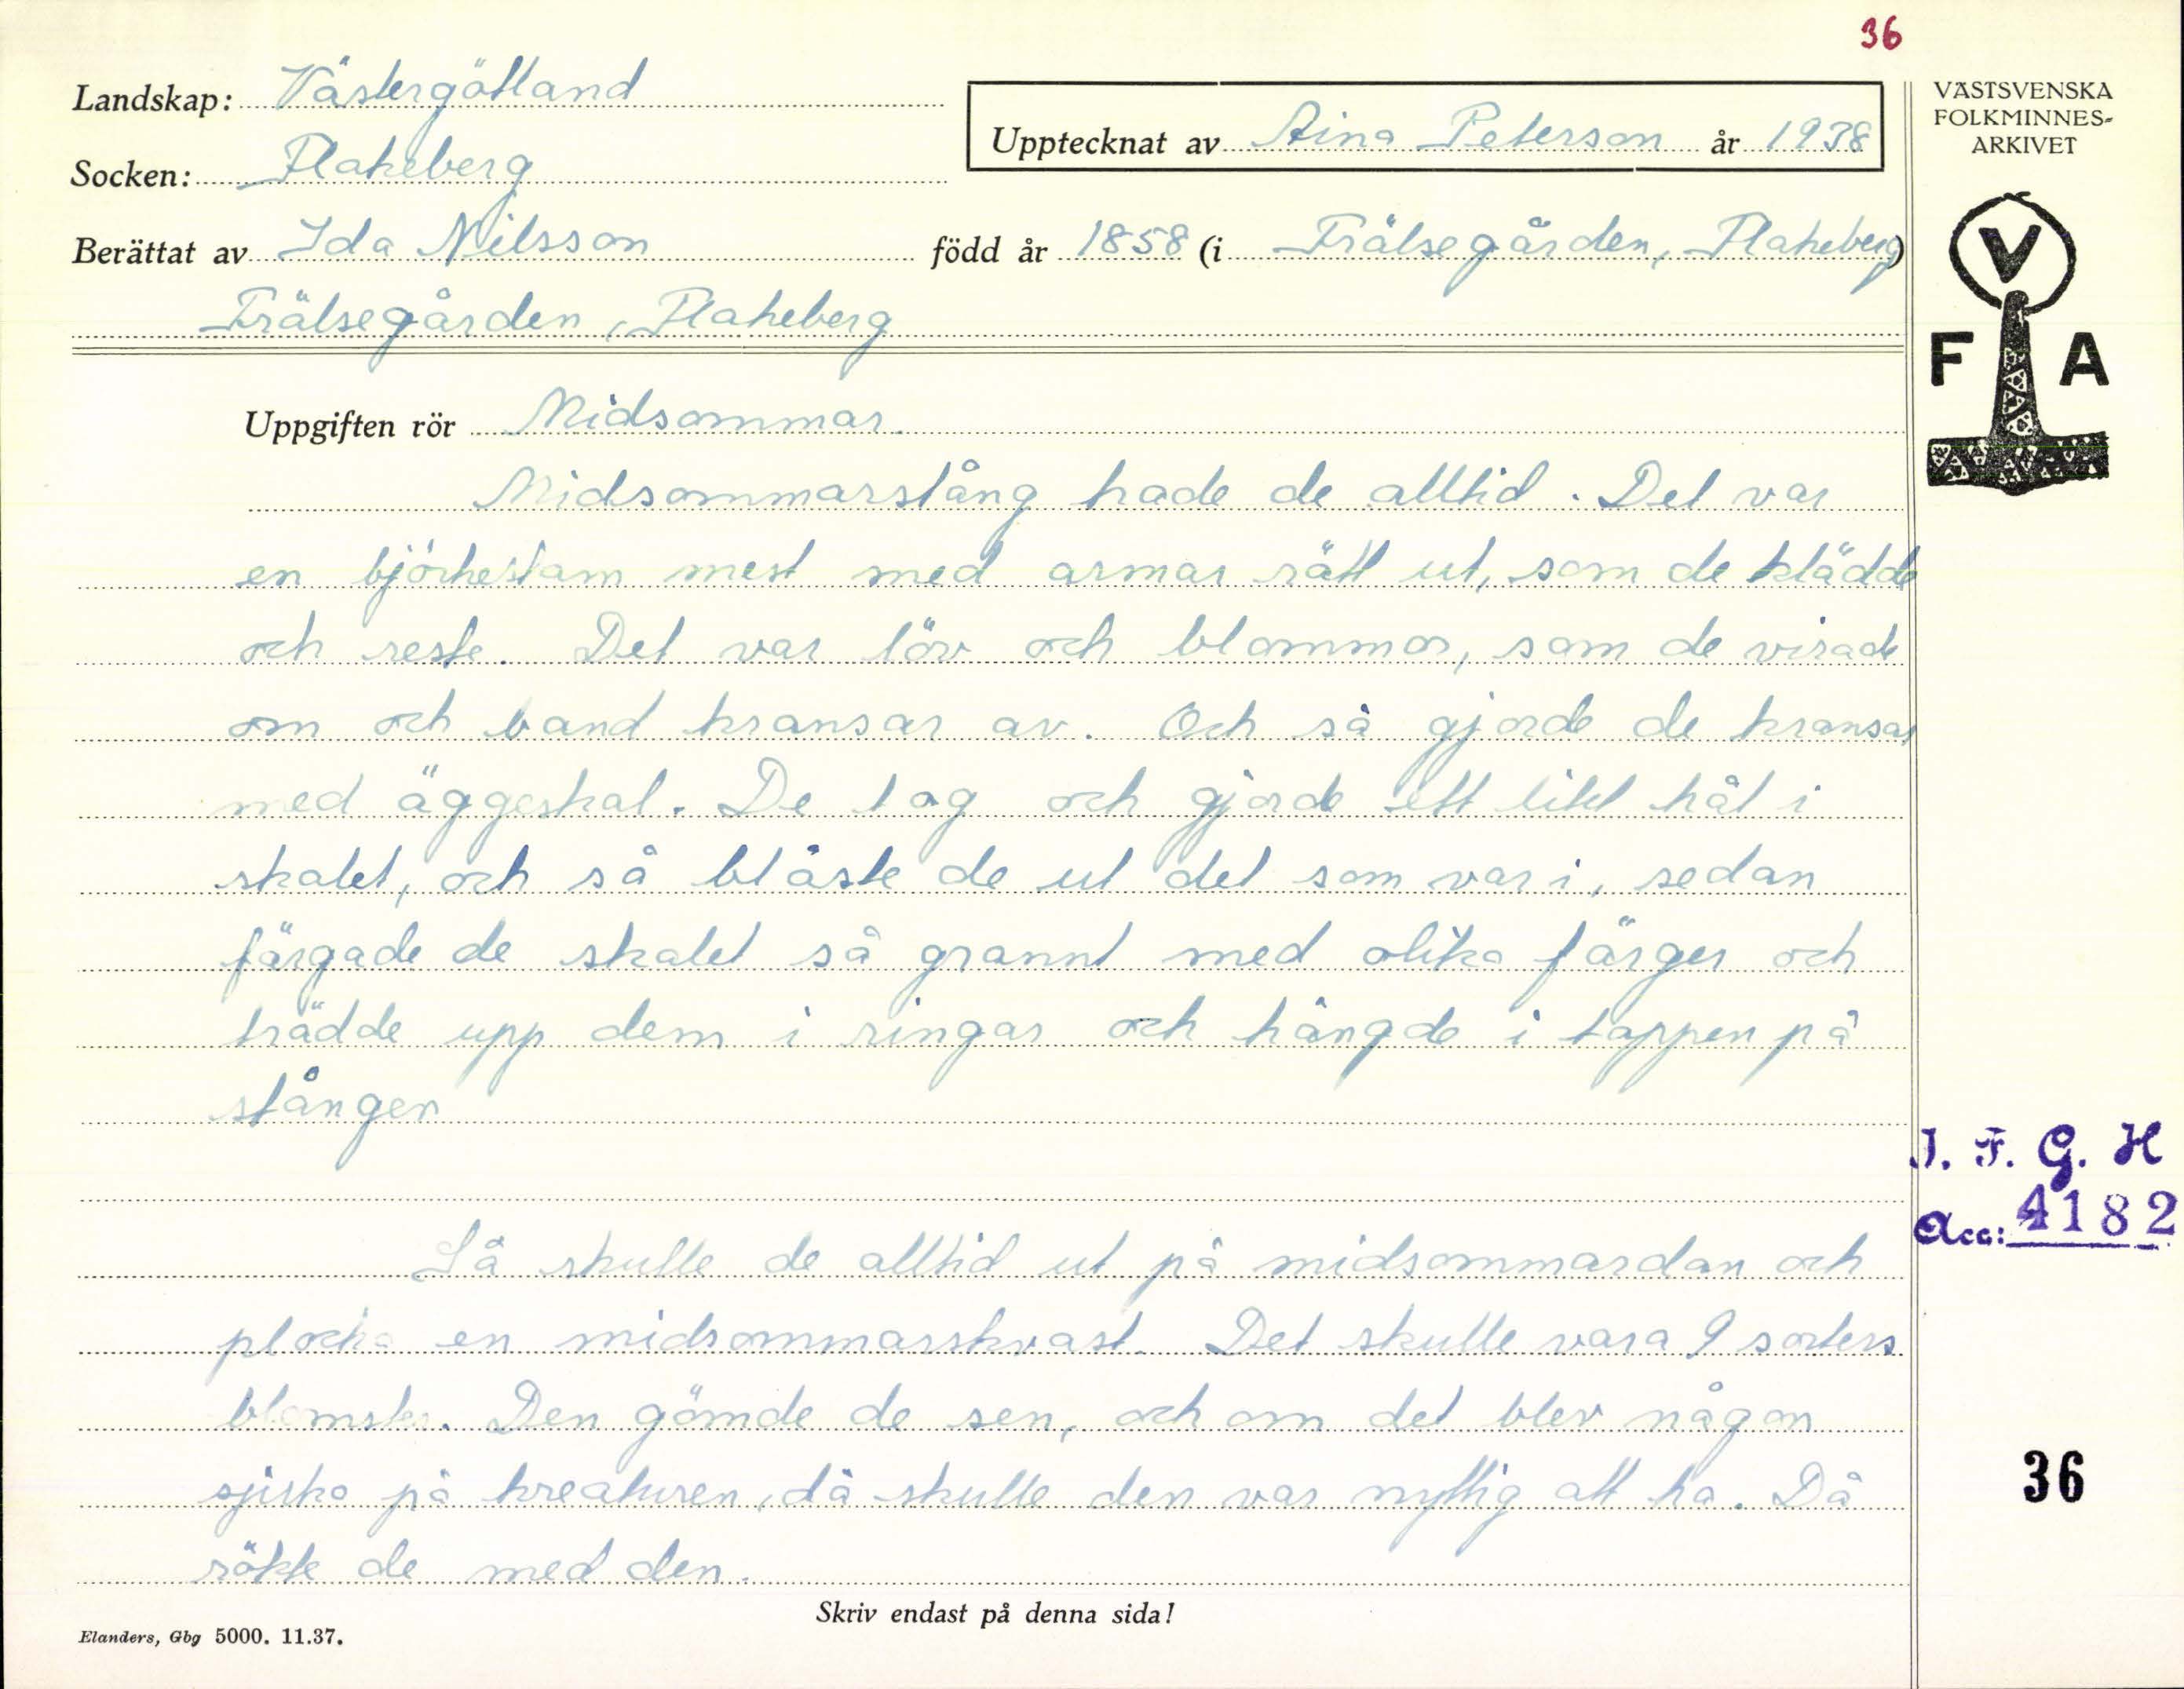 36
Landskap: Västergötland
Socken: Flakeberg
Upptecknat av Aina Peterson år 1938
Berättat av Ida Nilsson född år 1858 (i Frälsegården, Flakeberg)
Frälsegården, Flakeberg
VÄSTSVENSKA
FOLKMINNES-
ARKIVET
V
F A
Uppgiften rör Midsommar.
Midsommarstång hade de alltid. Det var
en björkestam mest med armar rätt ut, som de klädde
och reste. Det var löv och blommor, som de virade
om och band kransar av. Och så gjorde de kransar
med äggeskal. De tog och gjorde ett litet hål i
skalet, och så blåste de ut det som var i, sedan
färgade de skalet så grannt med olika färger och
trädde upp dem i ringar och hängde i toppen på
stången
Så skulle de alltid ut på midsommardan och
plocka en midsommarskvast. Det skulle vara 9 sorters
blomster. Den gömde de sen, och om det blev någon
sjuka på kreaturen, då skulle den var nyttig att ha. Då
rökte de med den.
I. F. G. H
Acc: 4182
36
Skriv endast på denna sida!
Elanders, Gbg 5000. 11.37.